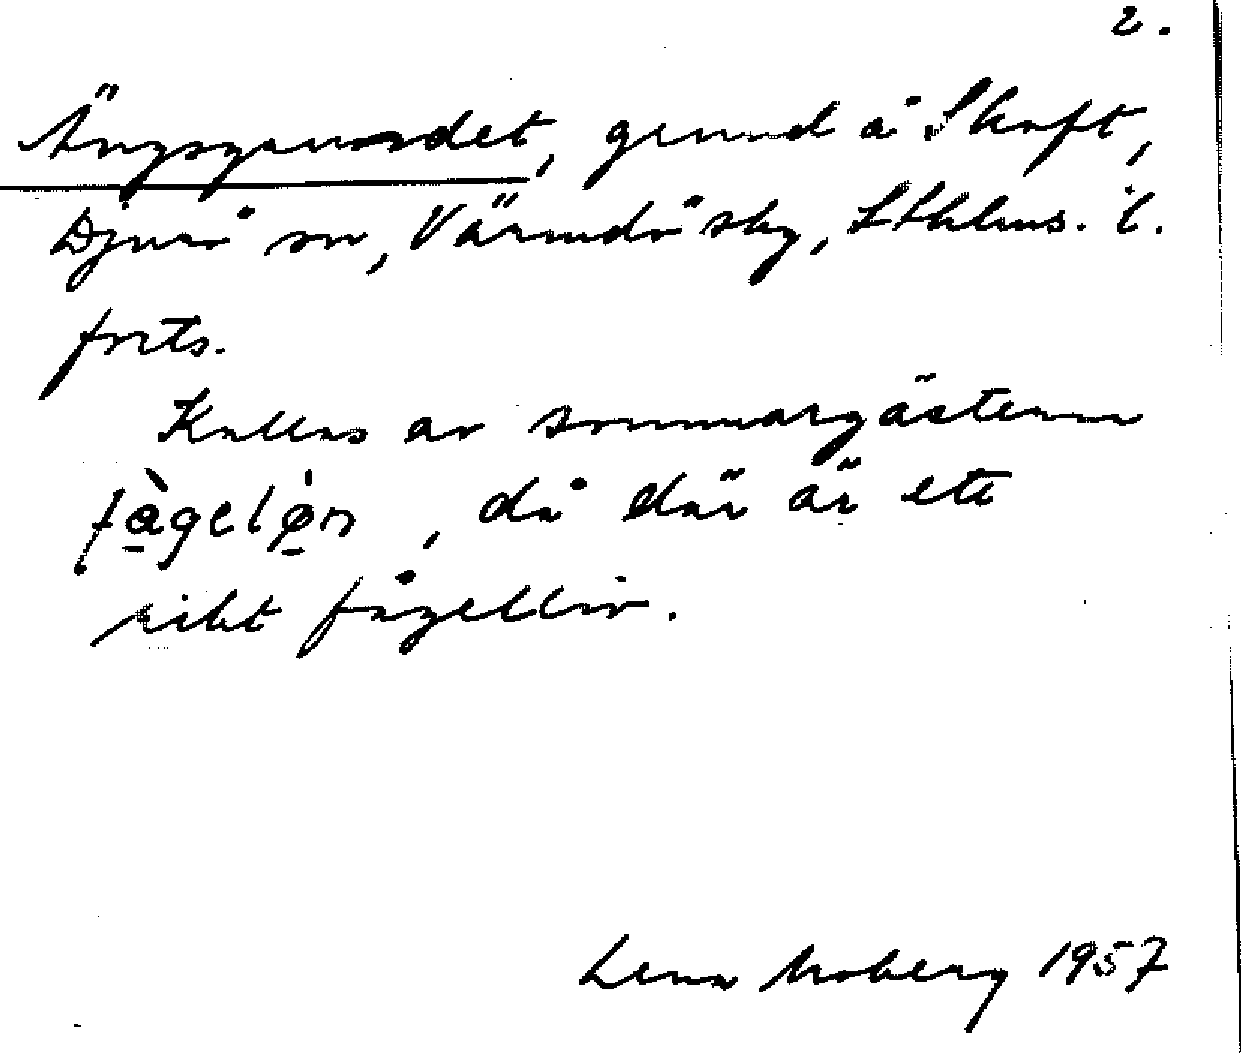 2.
Ängsgrundet, grund å Skaft,
Djurö sn, Värmdö sky, Sthlms. l.
forts.
Kallas av sommargästerna
fà̱gelø̱̀n, då där är ett
rikt fågelliv.
Lena Moberg 1957